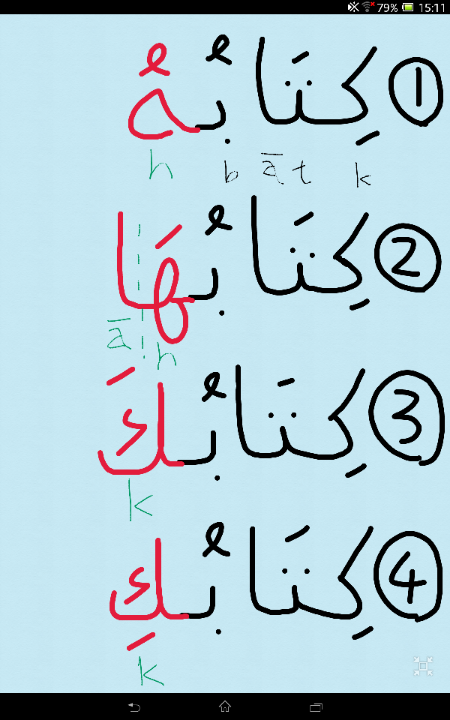 79% 15:11
① كِتَابُهُ
h b ā t k
② كِتَابُهَا
ā h
③ كِتَابُكَ
k
④ كِتَابُكِ
k